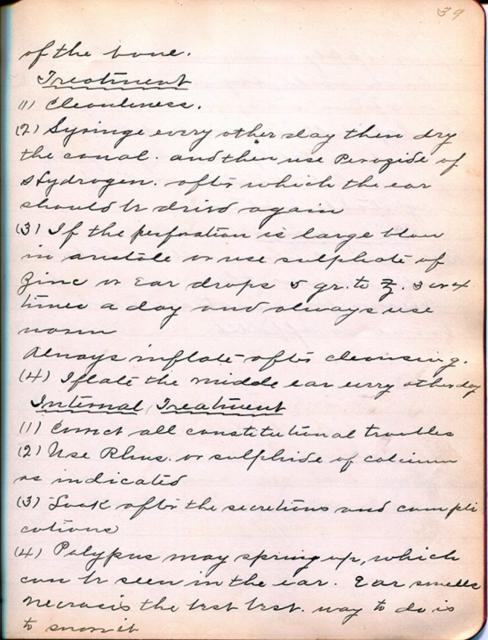 39
of the bone.
Treatment
(1) Cleanliness.
(2) Syringe every other day then dry
the canal. and then use Peroxide of
Hydrogen. after which the ear
should be dried again
(3) If the perforation is large blow
in aristole or use sulphate of
Zinc or Ear drops 5 gr. to ℥. 3 or 4
times a day and always use
warm
Always inflate after cleansing.
(4) Iflate the middle ear every other day
Internal Treatment
(1) Correct all constitutional troubles
(2) Use Rhus. or sulphide of calcium
as indicated
(3) Look after the secretions and compli
cations
(4) Polypus may spring up, which
can be seen in the ear. Ear smells
necrosis the best test. way to do is
to